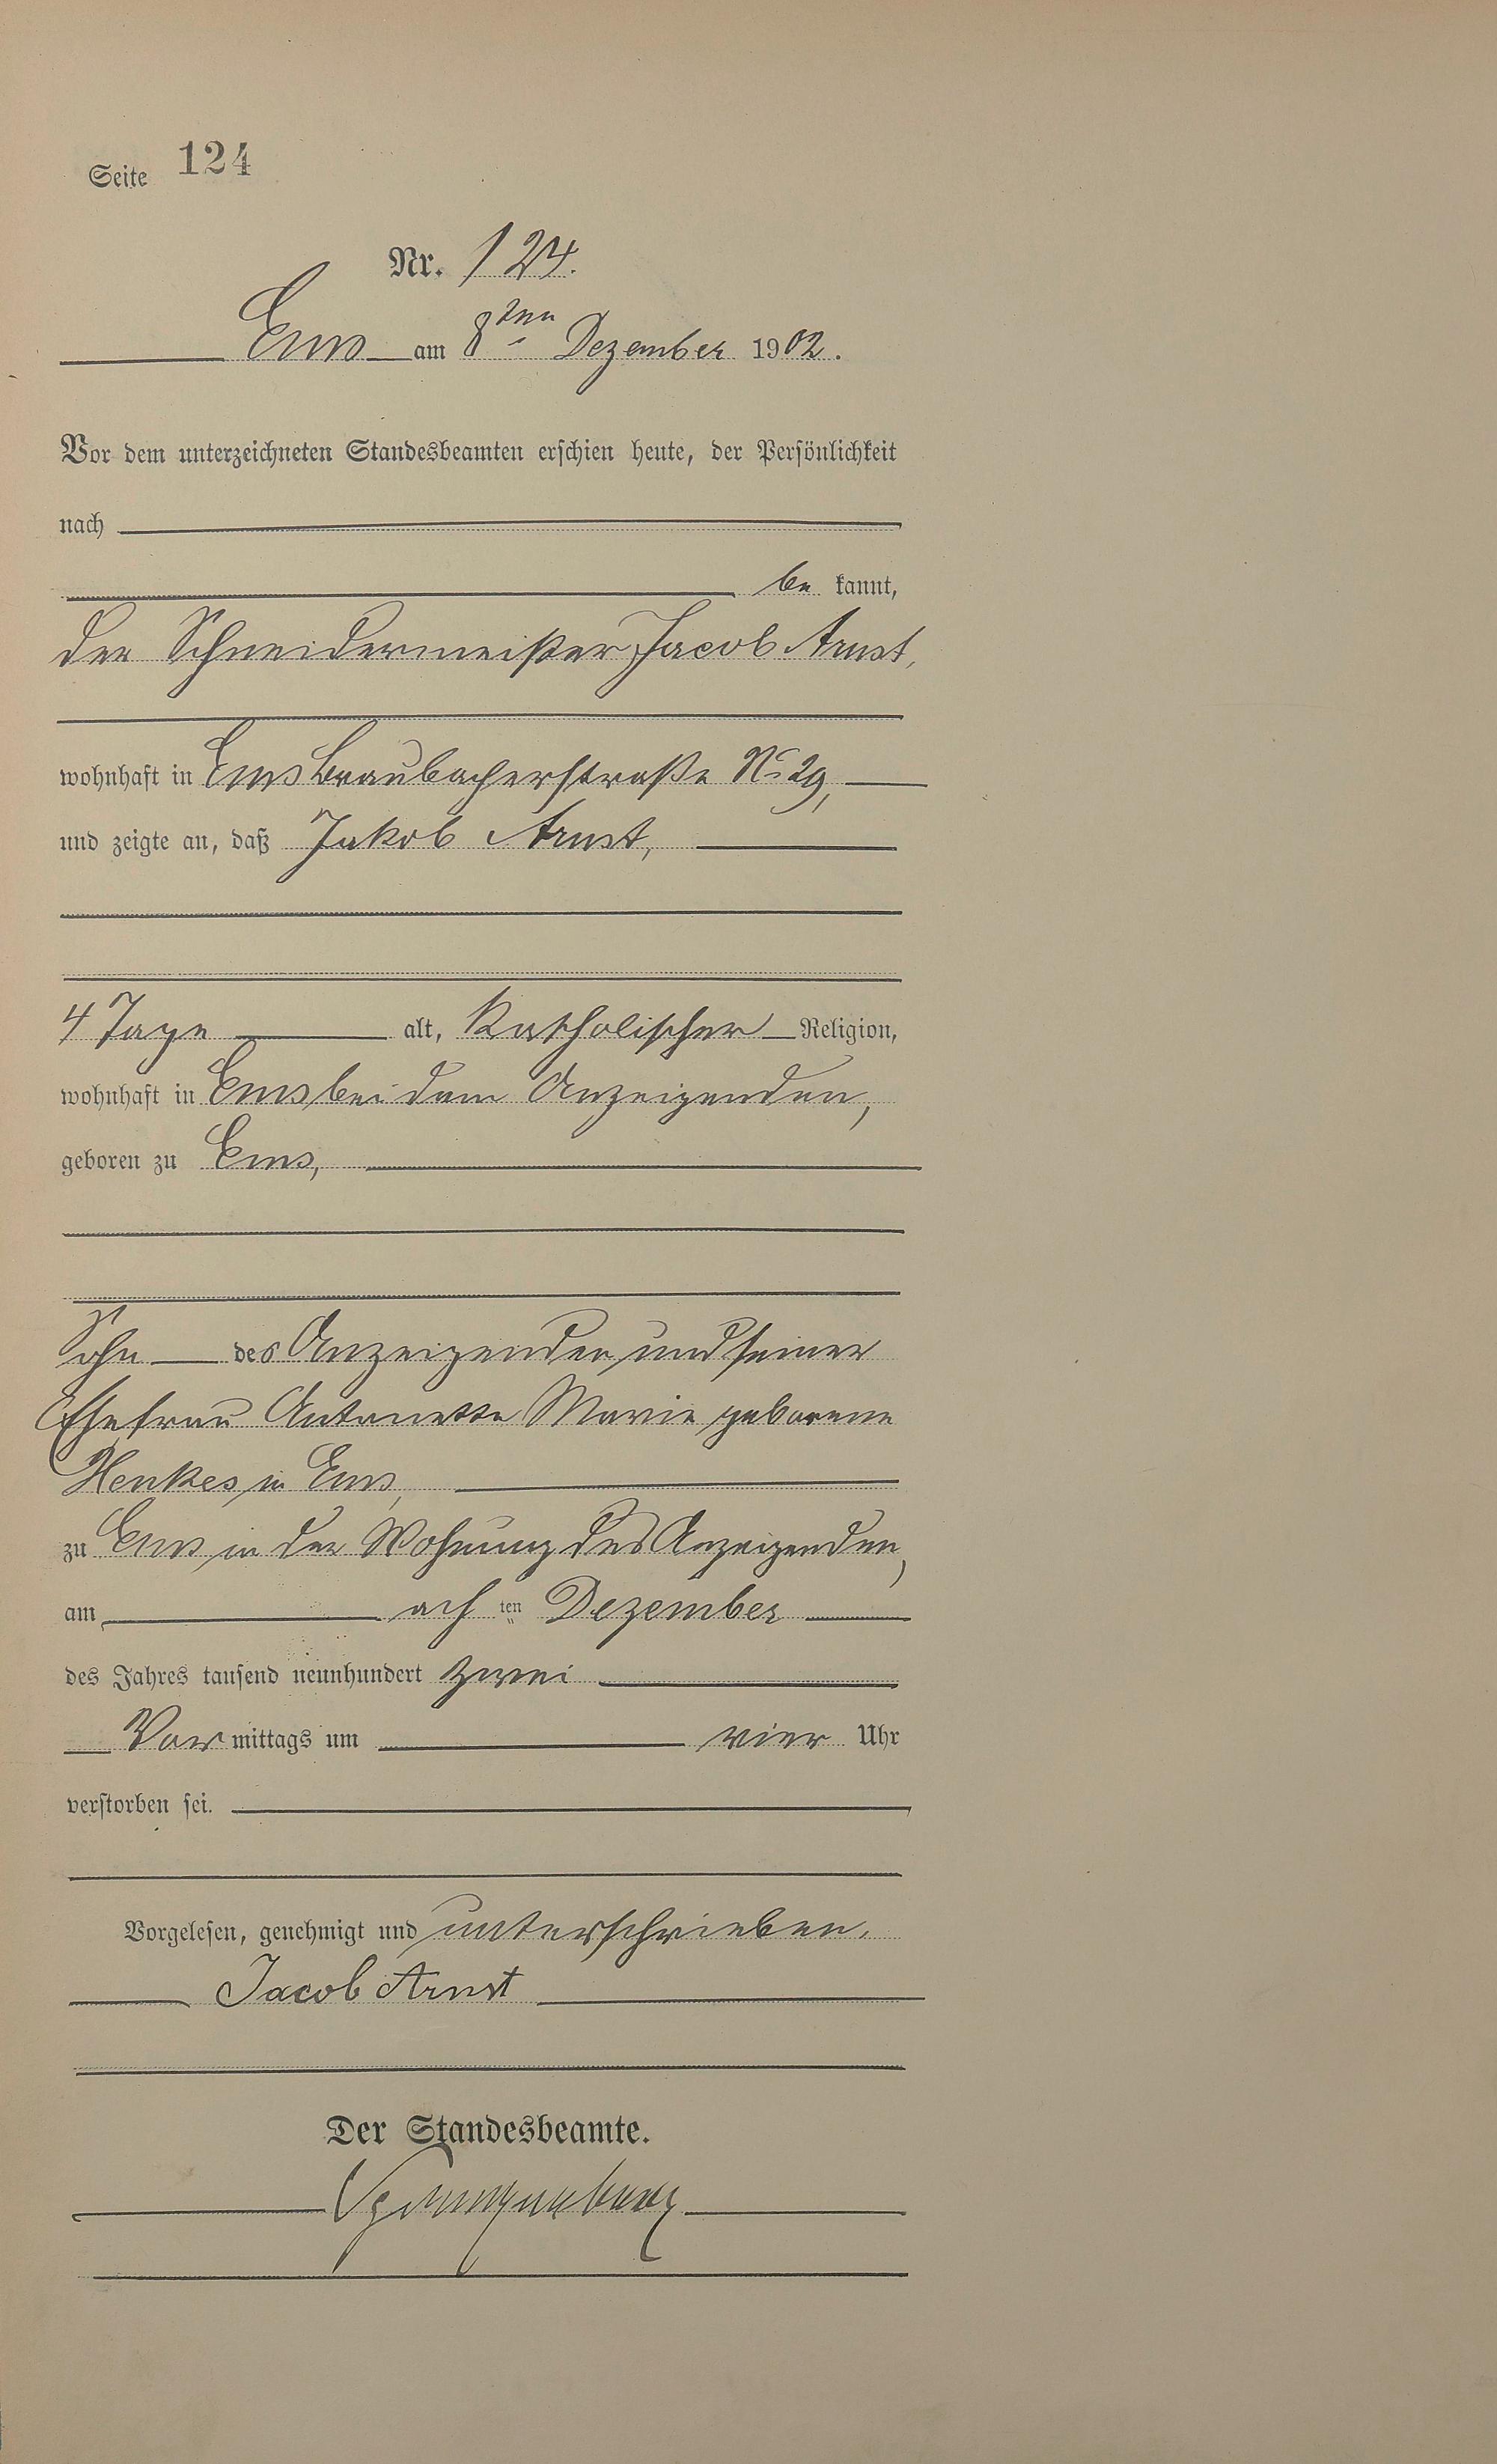 Seite 124
Nr. 124.
Ems am 8ten Dezember 1902.
Vor dem unterzeichneten Standesbeamten erschien heute, der Persönlichkeit
nach
be kannt,
der Schneidermeister Jacob Arnst,
wohnhaft in Ems Braubacherstraße No 29,
und zeigte an, daß Jakob Arnst,
4 Tage alt, katholischer Religion,
wohnhaft in Ems bei dem Anzeigenden,
geboren zu Ems,
Sohn des Anzeigenden und seiner
Ehefrau Antonette Marie geborene
Henkes in Ems,
zu Ems in der Wohnung des Anzeigenden,
am ach ten Dezember
des Jahres tausend neunhundert zwei
Vor mittags um vier Uhr
verstorben sei.
Vorgelesen, genehmigt und unterschrieben.
Jacob Arnst
Der Standesbeamte.